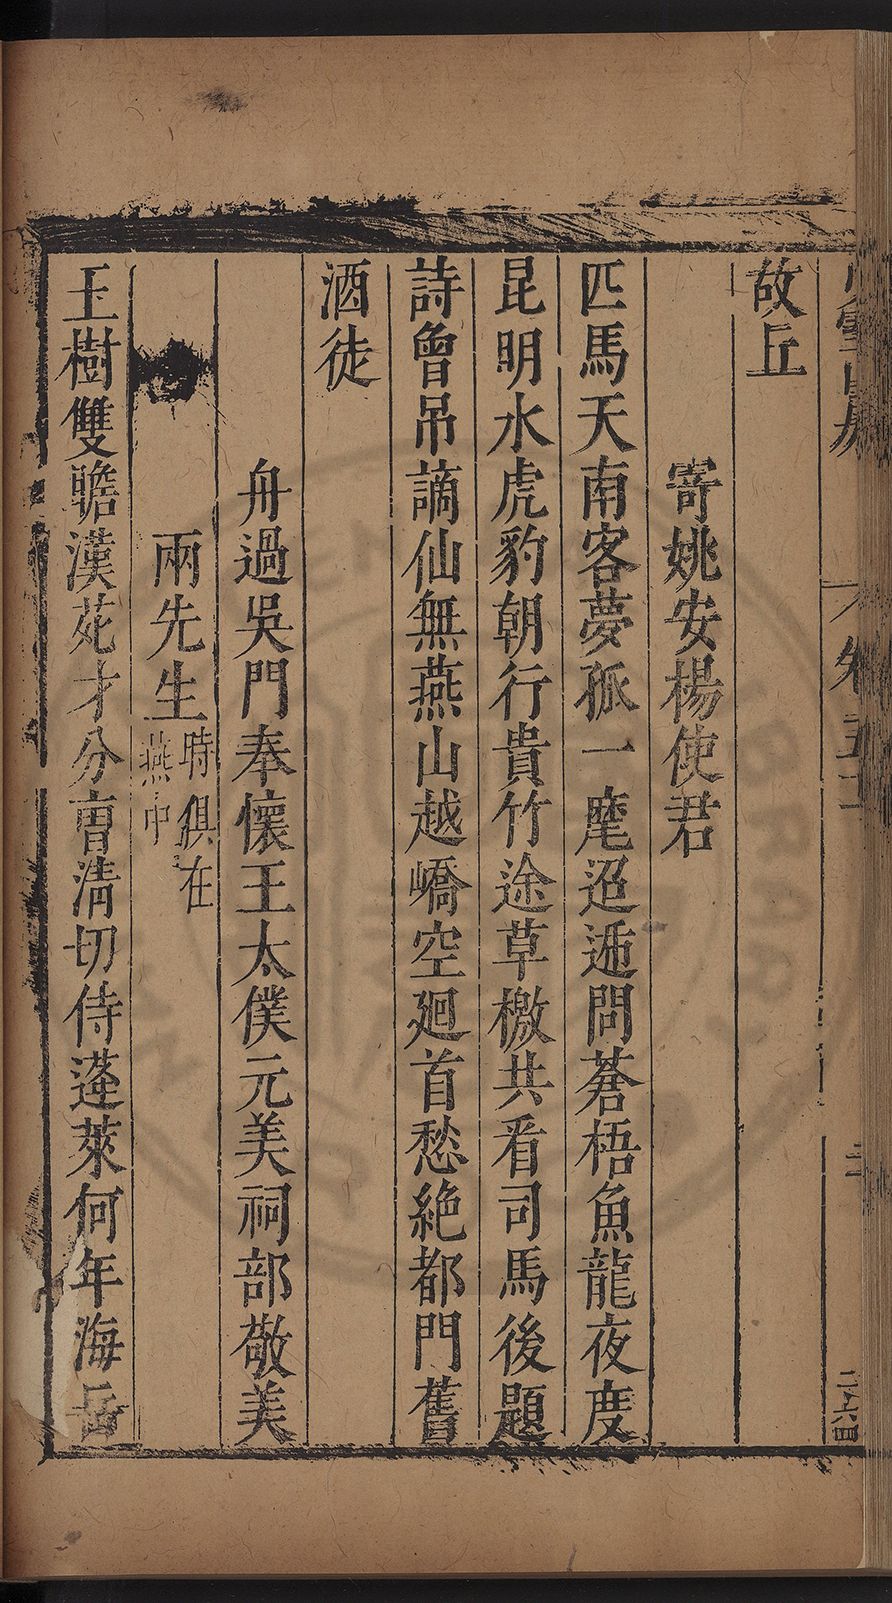 故丘
寄姚安楊使君
匹馬天南客夢孤一麾迢遞問蒼梧魚龍夜度
昆明水虎豹朝行貴竹途草檄共看司馬後題
詩曾吊謫仙無燕山越嶠空廻首愁絶都門舊
酒徒
舟過吳門奉懷王太僕元美祠部敬美
兩先生時俱在燕中
玉樹雙瞻漢苑才分曹清切侍蓬萊何年海岳